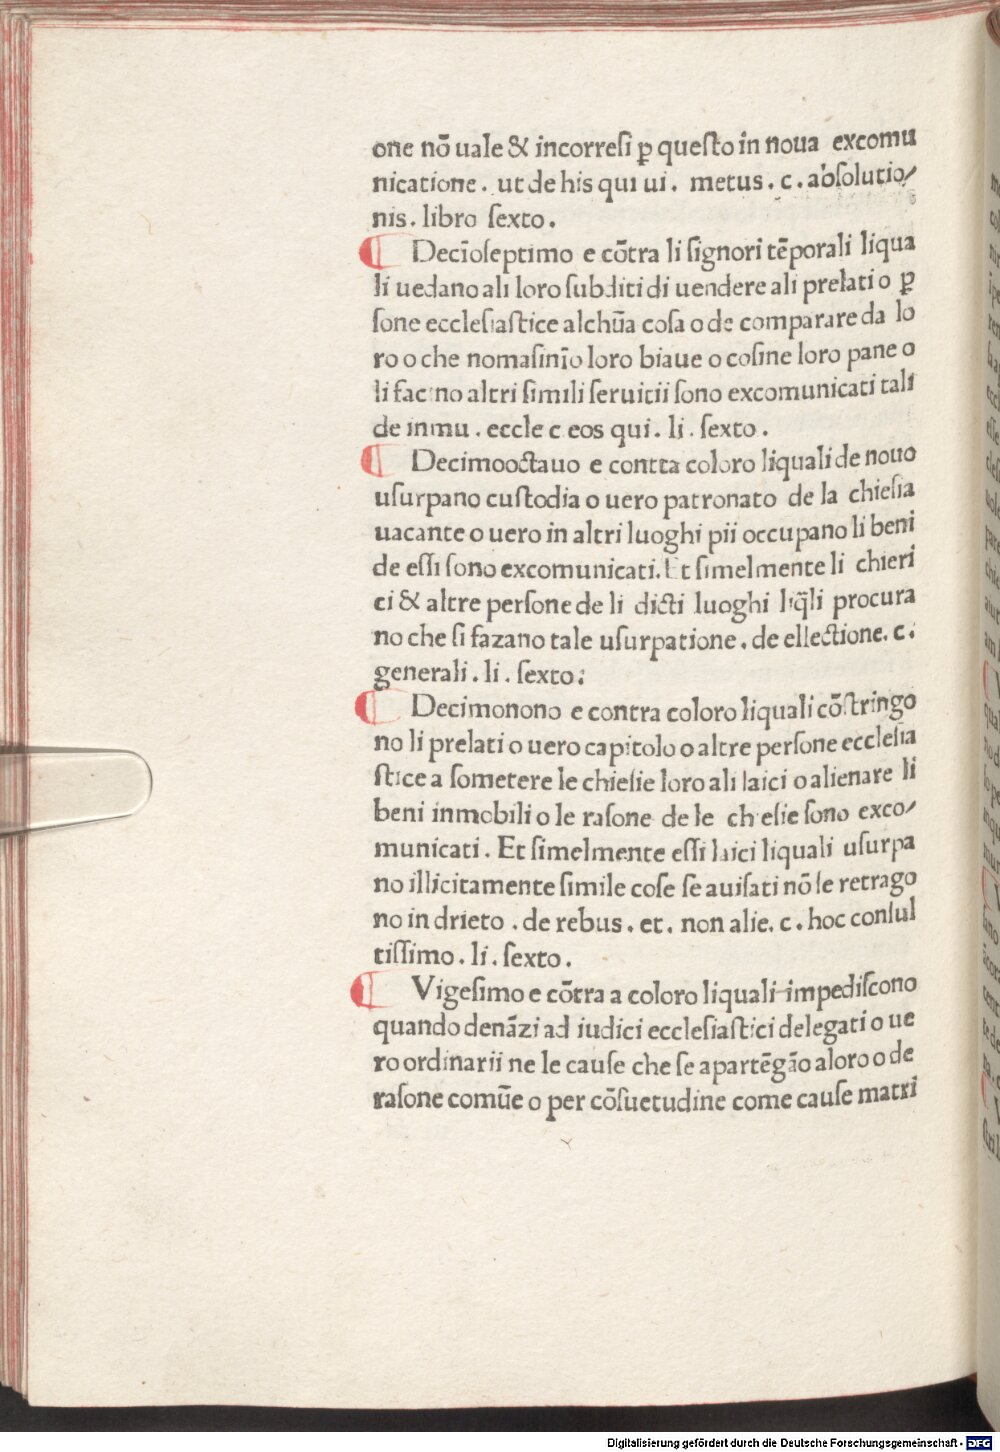 one nō uale & incorresi ꝑ questo in noua excomu
nicatione. ut de his qui ui. metus. c. absolutio/
nis. libro sexto.
Decīoseptimo e cōtra li signori tēporali liqua
li uedano ali loro subditi di uendere ali prelati o ꝑ
sone ecclesiastice alchūa cosa o de comparare da lo
ro o che nomasinīo loro biaue o cosine loro pane o
li facino altri simili seruitii sono excomunicati tali
de inmu. eccle c eos qui. li. sexto.
Decimooctauo e contta coloro liquali de nouo
usurpano custodia o uero patronato de la chiesia
uacante o uero in altri luoghi pii occupano li beni
de essi sono excomunicati. Et simelmente li chieri
ci & altre persone de li dicti luoghi liq̄li procura
no che si fazano tale usurpatione. de ellectione. c.
generali. li. sexto:
Decimonono e contra coloro liquali cōstringo
no li prelati o uero capitolo o altre persone ecclesia
stice a sometere le chiesie loro ali laici o alienare li
beni inmobili o le rasone de le chiesie sono exco/
municati. Et simelmente essi laici liquali usurpa
no illicitamente simile cose se auisati nō se retrago
no in drieto. de rebus. et. non alie. c. hoc consul
tissimo. li. sexto.
Vigesimo e cōtra a coloro liquali impediscono
quando denāzi ad iudici ecclesiastici delegati o ue
ro ordinarii ne le cause che se apartēgāo aloro o de
rasone comūe o per cōsuetudine come cause matri
Digitalisierung gefördert durch die Deutsche Forschungsgemeinschaft - DFG